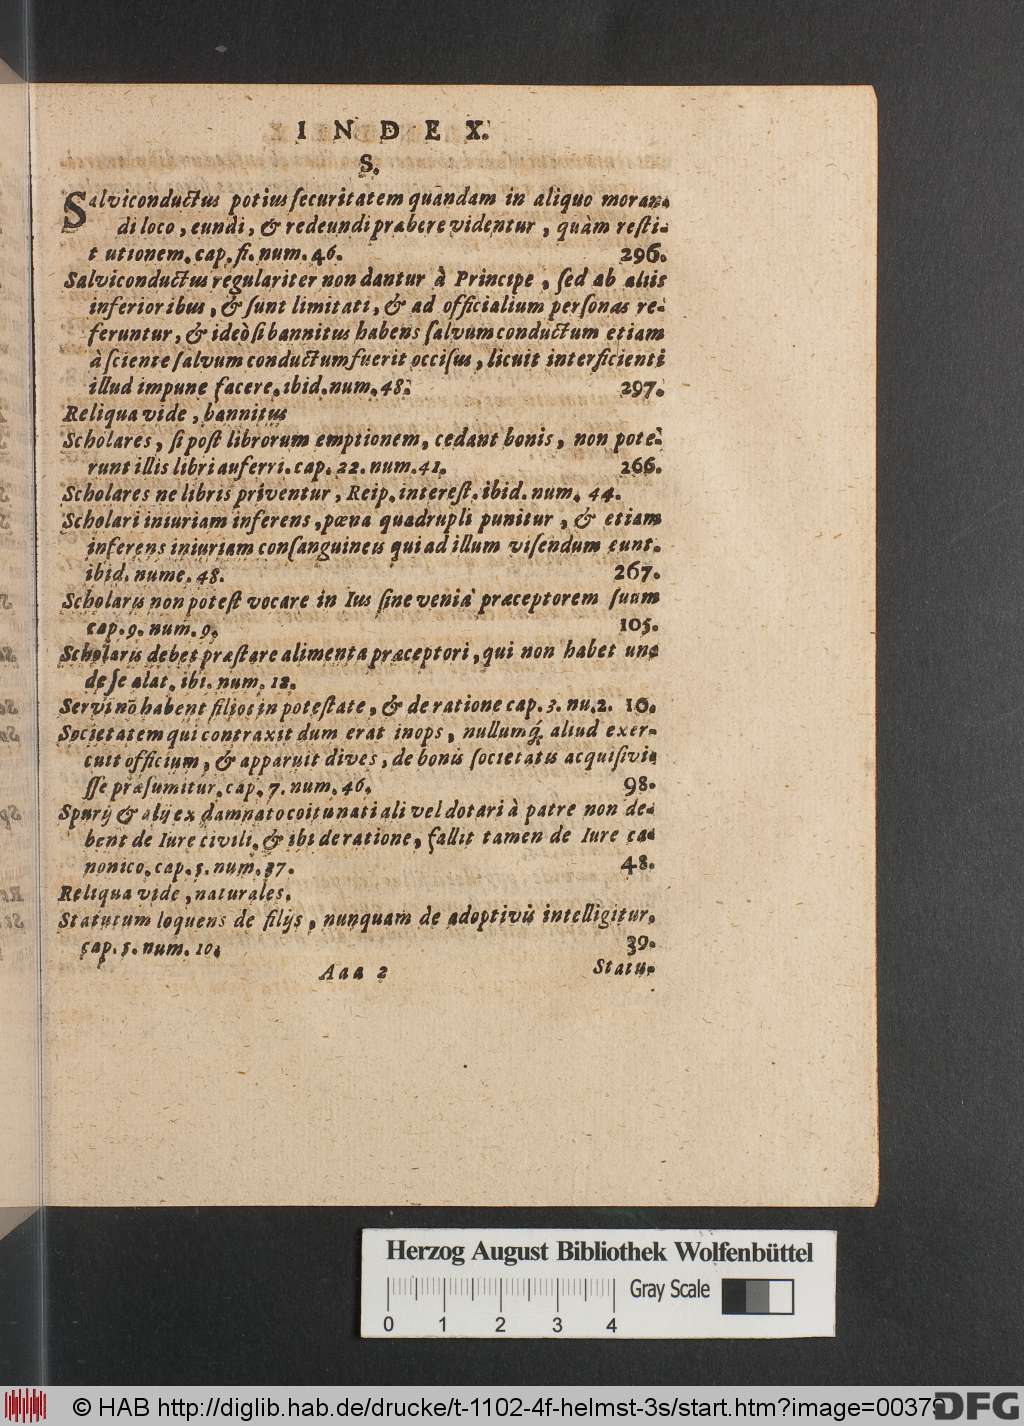 INDEX.
S.
Salviconductus potius ſecuritatem quandam in aliquo moran-
di loco, eundi, & redeundi præbere videntur, quàm reſti-
tutionem. cap. fi. num. 46. 296.
Salviconductus regulariter non dantur à Principe, ſed ab aliis
inferioribus, & ſunt limitati, & ad officialium perſonas re-
feruntur, & ideò ſi bannitus habens ſalvum conductum etiam
à ſciente ſalvum conductum fuerit occiſus, licuit interficienti
illud impune facere. ibid. num. 48. 297.
Reliqua vide, bannitus
Scholares, ſi poſt librorum emptionem, cedant bonis, non pote-
runt illis libri auferri. cap. 22. num. 41. 266.
Scholares ne libris priventur, Reip. intereſt. ibid. num. 44.
Scholari iniuriam inferens, pœna quadrupli punitur, & etiam
inferens iniuriam conſanguineis qui ad illum viſendum eunt.
ibid. nume. 48. 267.
Scholaris non poteſt vocare in Ius ſine venia præceptorem ſuum
cap. 9. num. 9. 105.
Scholaris debet præſtare alimenta præceptori, qui non habet un-
de ſe alat. ibi. num. 12.
Servi nō habent filios in poteſtate, & de ratione cap. 3. nu. 2. 10.
Societatem qui contraxit dum erat inops, nullumq́; aliud exer-
cuit officium, & apparuit dives, de bonis ſocietatis acquiſivi-
ſſe præſumitur. cap. 7. num. 46. 98.
Spurij & alij ex damnato coitu nati ali vel dotari à patre non de-
bent de Iure civili. & ibi de ratione, fallit tamen de Iure ca-
nonico. cap. 5. num. 37. 48.
Reliqua vide, naturales.
Statutum loquens de filijs, nunquam de adoptivis intelligitur.
cap. 5. num. 10. 39.
Aaa 2 Statu-
Herzog August Bibliothek Wolfenbüttel
Gray Scale
0 1 2 3 4
© HAB http://diglib.hab.de/drucke/t-1102-4f-helmst-3s/start.htm?image=00379
DFG